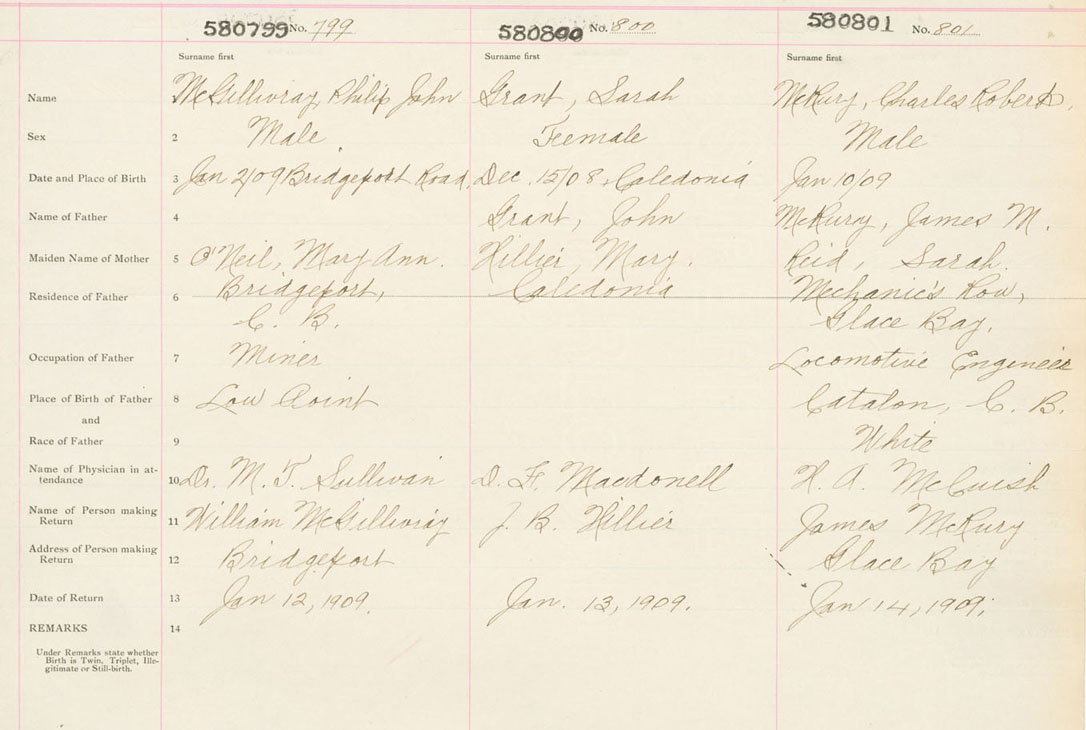 580799 No. 799 580800 No. 800 580801 No. 801
Surname first Surname first Surname first
Name McGillivray, Philip John Grant, Sarah McRury, Charles Robert,
Sex 2 Male Feemale Male
Date and Place of Birth 3 Jan 2/09 Bridgeport Road, Dec. 15/08, Caledonia Jan 10/09
Name of Father 4 Grant, John McRury, James M.
Maiden Name of Mother 5 O'Neil, Mary Ann. Hillier, Mary. Reid, Sarah.
Residence of Father 6 Bridgeport, Caledonia Mechanic's Row,
C. B. Glace Bay.
Occupation of Father 7 Miner Locomotive Engineer
Place of Birth of Father 8 Low Point Catalon, C. B.
and
Race of Father 9 White
Name of Physician in at-
tendance 10 Dr. M. T. Sullivan D. F. Macdonell H. A. McCuish
Name of Person making
Return 11 William McGillivray J. B. Hillier James McRury
Address of Person making
Return 12 Bridgeport Glace Bay
Date of Return 13 Jan 12, 1909. Jan. 13, 1909. Jan 14, 1909.
REMARKS 14
Under Remarks state whether
Birth is Twin, Triplet, Ille-
gitimate or Still-birth.